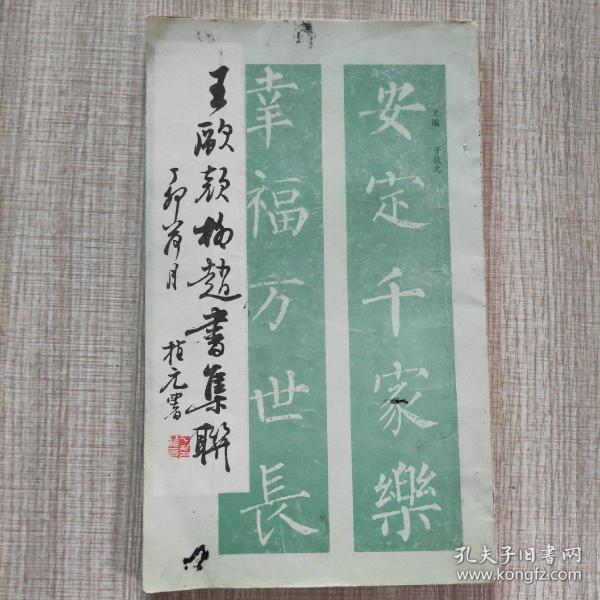 安定千家樂
幸福万世長
主编 于植元
王歐顏柳趙書集聯
丁卯荷月
植元署
孔夫子旧书网
www.kongfz.com